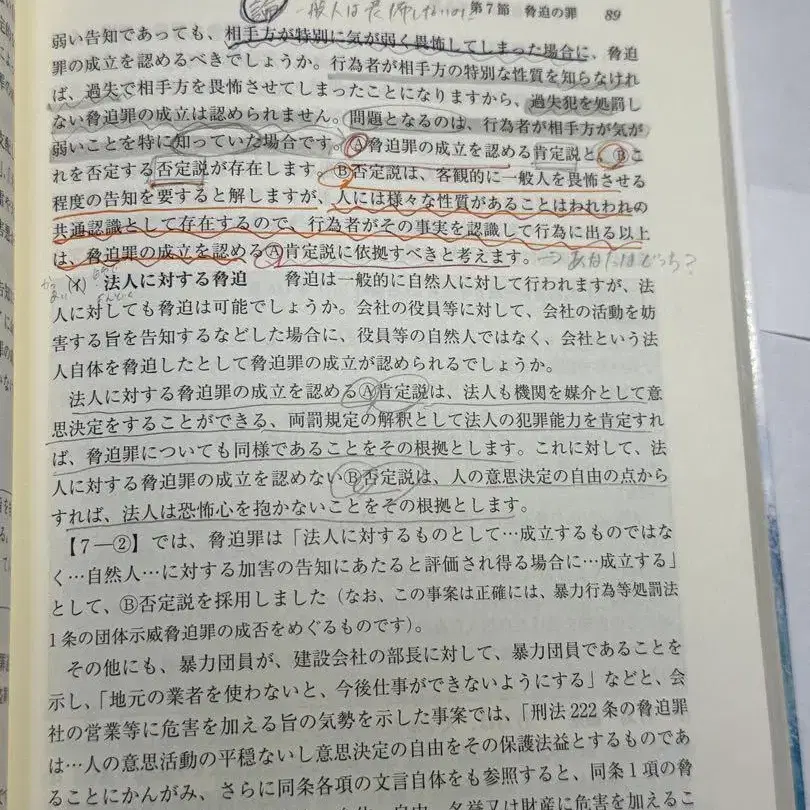 論 一般人は畏怖しないのに
第7節 脅迫の罪 89
弱い告知であっても、相手方が特別に気が弱く畏怖してしまった場合に、脅迫
罪の成立を認めるべきでしょうか。行為者が相手方の特別な性質を知らなけれ
ば、過失で相手方を畏怖させてしまったことになりますから、過失犯を処罰し
ない脅迫罪の成立は認められません。問題となるのは、行為者が相手方が気が
弱いことを特に知っていた場合です。Ⓐ脅迫罪の成立を認める肯定説と、Ⓑこ
れを否定する否定説が存在します。Ⓑ否定説は、客観的に一般人を畏怖させる
程度の告知を要すると解しますが、人には様々な性質があることはわれわれの
共通認識として存在するので、行為者がその事実を認識して行為に出る以上
は、脅迫罪の成立を認めるⒶ肯定説に依拠すべきと考えます。→あなたはどっち?
法人に対する脅迫 脅迫は一般的に自然人に対して行われますが、法
人に対しても脅迫は可能でしょうか。会社の役員等に対して、会社の活動を妨
害する旨を告知するなどした場合に、役員等の自然人ではなく、会社という法
人自体を脅迫したとして脅迫罪の成立が認められるでしょうか。
法人に対する脅迫罪の成立を認めるⒶ肯定説は、法人も機関を媒介として意
思決定をすることができる、両罰規定の解釈として法人の犯罪能力を肯定すれ
ば、脅迫罪についても同様であることをその根拠とします。これに対して、法
人に対する脅迫罪の成立を認めないⒷ否定説は、人の意思決定の自由の点から
すれば、法人は恐怖心を抱かないことをその根拠とします。
【7―②】では、脅迫罪は「法人に対するものとして…成立するものではな
く…自然人…に対する加害の告知にあたると評価され得る場合に…成立する」
として、Ⓑ否定説を採用しました（なお、この事案は正確には、暴力行為等処罰法
1条の団体示威脅迫罪の成否をめぐるものです）。
その他にも、暴力団員が、建設会社の部長に対して、暴力団員であることを
示し、「地元の業者を使わないと、今後仕事ができないようにする」などと、会
社の営業等に危害を加える旨の気勢を示した事案では、「刑法222条の脅迫罪
は…人の意思活動の平穏ないし意思決定の自由をその保護法益とするものであ
ることにかんがみ、さらに同条各項の文言自体をも参照すると、同条1項の脅
自由、名誉又は財産に危害を加えるこ